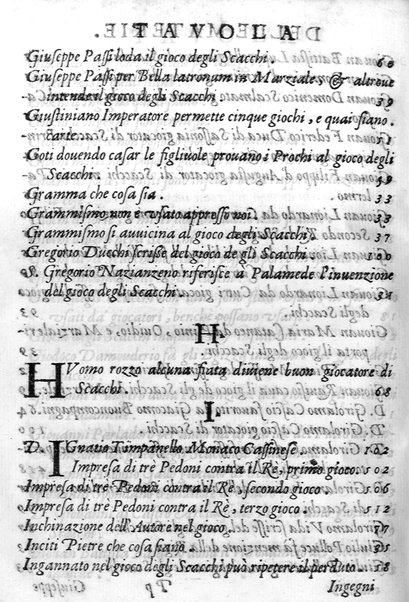 TAVOLA
Giuseppe Passi loda il gioco degli Scacchi. 60
Giuseppe Passi per Bella latronum in Martiale, & altroue
intende il gioco degli Scacchi. 59
Giustiniano Imperatore permette cinque giochi, e quai siano.
carte.
Goti douendo casar le figliuole prouano i Prochi al gioco degli
Scacchi. 49
Gramma che cosa sia. 33
Grammismo non è vsato appresso noi. 33
Grammismo si auuicina al gioco degli Scacchi. 37
Gregorio Duechi scrisse del gioco de gli Scacchi. 100
S. Gregorio Nazianzeno riferisce a Palamede l'inuenzione
del gioco degli Scacchi.
H
HVomo rozzo alcuna fiata diuiene buon giocatore di
Scacchi. 68
I
D. IGnatio Timpanello Monaco Cassinese. 102
Impresa di trè Pedoni contra il Rè, primo gioco. 105
Impresa di trè Pedoni contra il Rè, secondo gioco. 106
Impresa di trè Pedoni contra il Rè, terzo gioco.
Inchinazione dell'Autore nel gioco. 37
Inciti Pietre che cosa siano.
Ingannato nel gioco degli Scacchi può ripetere il perduto. 58
Ingegni